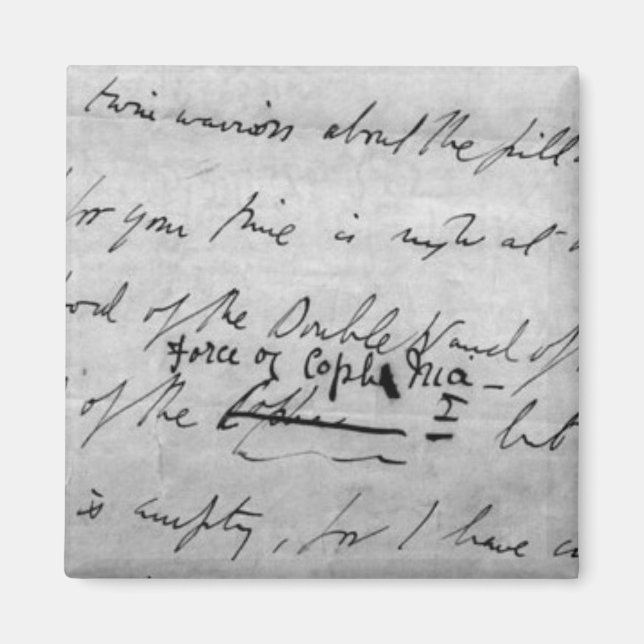 twin warriors about the pill
for your time is nigh at
of the Double Wand of
Force of Coph Nia -
of the Coph I but
is empty, for I have